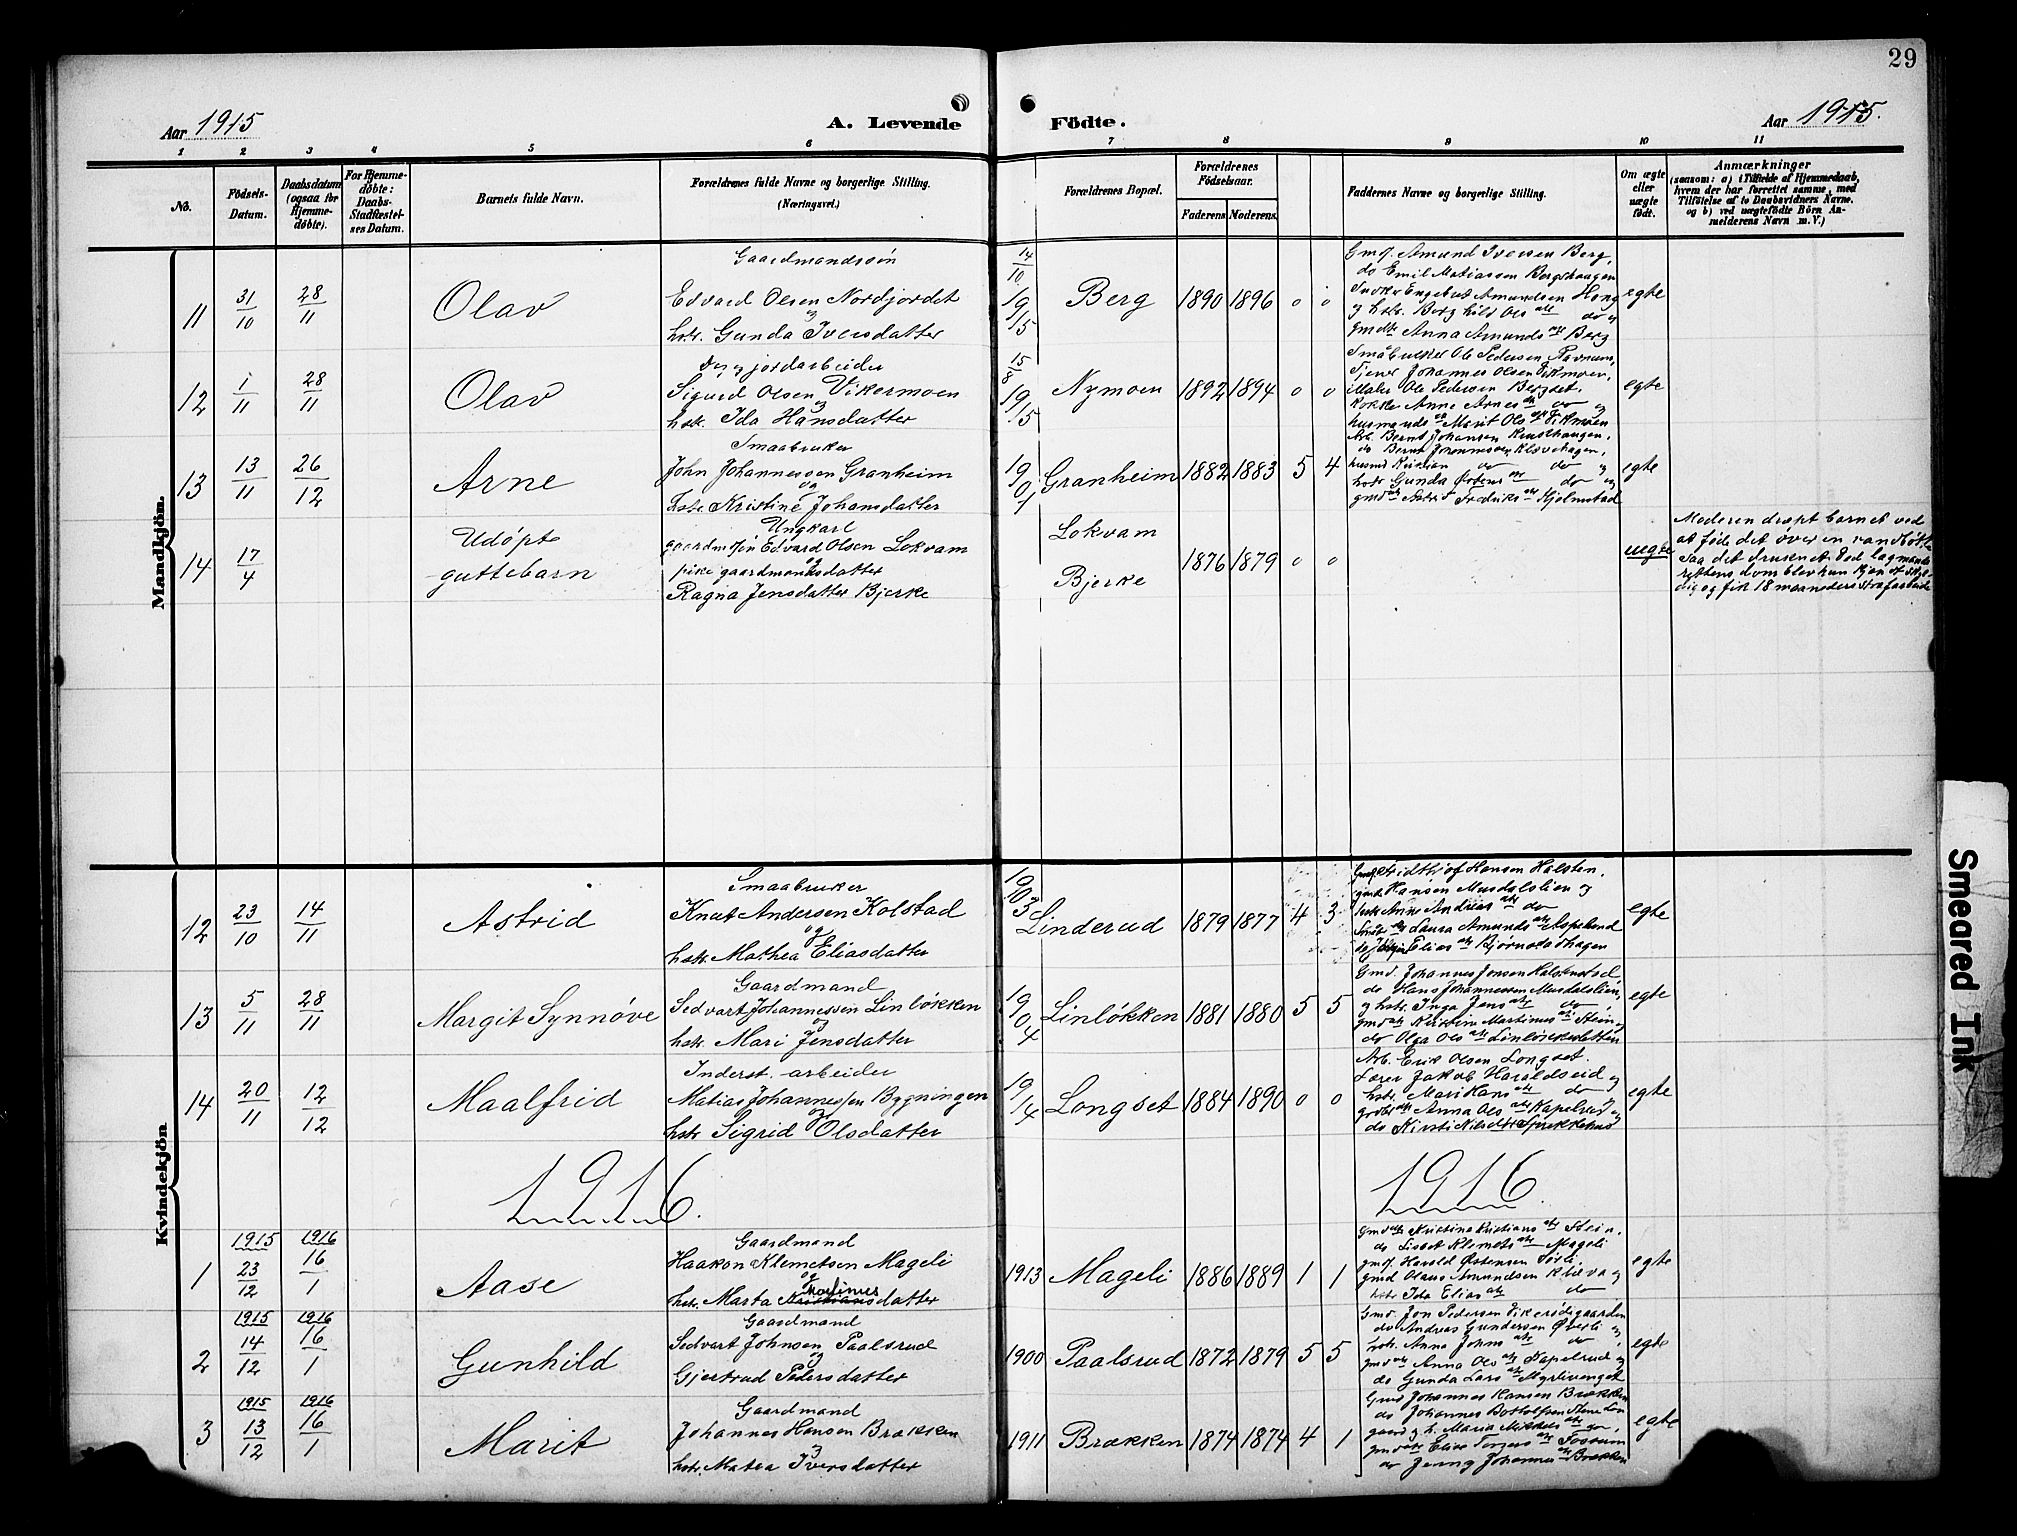 29
Aar 1915
A. Levende
Födte.
Aar 1915.
1 2 3 4 5 6 7 8 9 10 11
No.
Födsels-
Datum.
Daabsdatum
(ogsaa for
Hjemme-
döbte).
For Hjemme-
døbte:
Daabs-
Stadfæstel-
ses Datum.
Barnets fulde Navn.
Forældrenes fulde Navne og borgerlige Stilling.
(Næringsvei.)
Forældrenes Bopæl.
Forældrenes
Fødselsaar.
Faderens.
Moderens.
Faddernes Navne og borgerlige Stilling.
Om ægte
eller
uægte
födt.
Anmærkninger
(saasom: a) i Tilfælde af Hjemmedaab,
hvem der har forrettet samme, med
Tilföielse af to Daabsvidners Navne.
og b) ved uægtefödte Börn An-
melderens Navn m. V.)
Mandkjön.
11 31/10 28/11 Olav
Gaardmandssön
Edvard Olsen Nordjordet
og
hstr. Gunda Iversdatter
14/10 19/15 Berg 1890 1896 0 0
Gmd. Amund Iversen Berg,
do Emil Matiassen Bergshaugen
og hstr. Berghild Ols dtr do og
gmdtr Anna Amunds dtr Berg
egte
12 1/11 28/11 Olav
jordarbeider
Sigurd Olsen Vikermoen
og
hstr. Ida Hansdatter
15/8 19/15 Nymoen 1892 1894 0 0
Småbruker Ole Pedersen
Tjener Johannes Olsen Vikmoen,
Maler Ole Pedersen Bergset.
Kokke Anne Arnes dtr do og
husmands dtr Marit Ols dtr Vikmoen
egte
13 13/11 26/12 Arne
Smaabruker
John Johannessen Granheim
og
hstr. Kristine Johansdatter
1907 Granheim 1882 1883 5 4
Arb. Bernt Johansen
do Bernt Johannessen Kløvehagen,
husmd Kristian do do og
hstr Gunda Østens dtr do og
gmdtr Astrid Fredriks dtr Hjelmstad
egte
14 17/4 Udøpt
guttebarn
Ungkarl
gaardmssön Edvard Olsen Lokvam
og
pike gaardmandsdatter
Ragna Jensdatter Bjerke
Lokvam
Bjerke
1876 1879 0 0
uegte
Moderen dræpt barnet ved
at føde det over en vandbøtte
saa det drusnet. Ved lagmands
rettens dom blev hun kjendt skyl-
dig og fik 18 maaneders strafarbeide
Kvindekjön
12 23/10 14/11 Astrid
Smaabruker
Knut Andersen Kolstad
og
hstr. Mathea Eliasdatter
1903 Linderud 1879 1877 4 3
Gmd. Fridthjof Hansen Halsten.
Hansen Musdalslien og
hstr Anne Andreas dtr do
Laura Amunds dtr Aspelund
Elias dtr Bjørnstadhagen
egte
13 5/11 28/11 Margit Synnöve
Gaardmand
Sedvart Johannessen Linløkken
og
hstr. Mari Jensdatter
1904 Linløkken 1881 1880 5 5
Gmd. Johannes Jensen Halstenstad
do Hans Johannessen Musdalslien,
og hstr. Inga Jens dtr do,
gmdtr Kristine Martinus dtr Stein og
do Olga Ols dtr Linløkkesletten
egte
14 20/11 12/12 Maalfrid
Inderst. arbeider
Matias Johannessen Bygningen
og
hstr Sigrid Olsdatter
19/14 Longset 1884 1890 0 0
Arb. Erik Olsen Longset.
Lærer Jakob Haraldseid og
hstr. Mari Hans dtr do og
Anna Ols dtr Kapelrud og
do Kirsti Nils dtr Sprækkehus
egte
1916
1916
1 1915 23/12 1916 16/1 Aase
Gaardmand
Haakon Klemetsen Mageli
og
Martinus
hstr. Marta Kristiansdatter
1913 Mageli 1886 1889 1 1
Gmdtr Kristina Kristians dtr Stein,
do Lisbet Klemets dtr Mageli
gmds Harald Østensen
gmd Olaus Amundsen Kleiva og
hstr Ida Elias dtr do
egte
2 1915 14/12 1916 16/1 Gunhild
Gaardmand
Sedvart Johnsen Paalsrud
og
Gjertrud Pedersdatter
1900 Paalsrud 1872 1879 5 5
Gmd. Jon Pedersen
do Andreas Gundersen Øverli og
hstr. Anna Johns dtr do
gmdtr Anna Ols dtr Kapelrud og
do Gunda Lars dtr Myrlivenget
egte
3 1915 13/12 1916 16/1 Marit
Gaardmand
Johannes Hansen Brækken
og
hstr. Matea Iversdatter
1911 Brækken 1874 1874 4 1
Gmd Johannes Hansen Brækken
do Johannes Botholfsen
og h. Maria Mikkels dtr do,
gmdtr Elise dtr Fossum
do Jenny Johannes dtr Brækken
egte
Smeared Ink